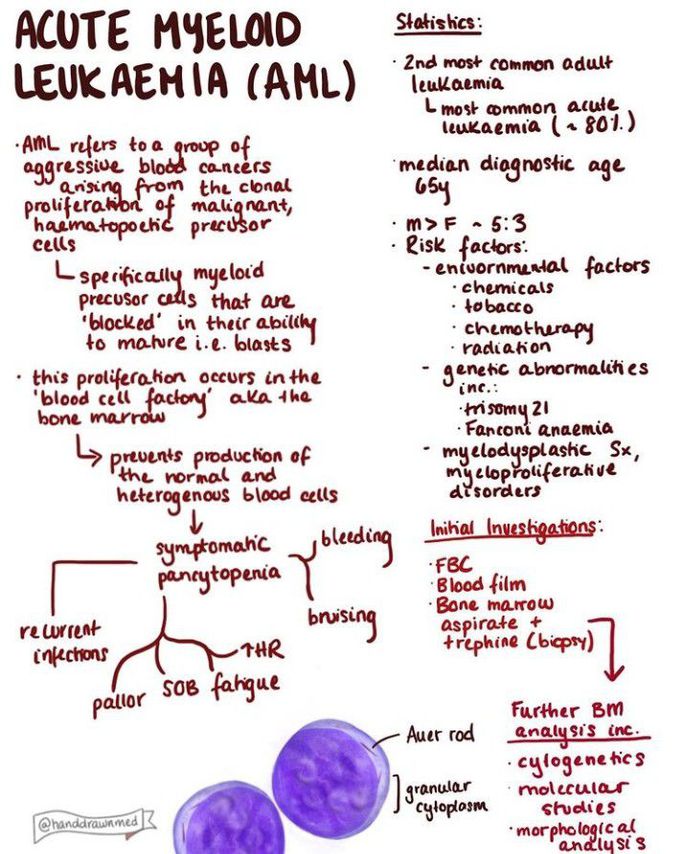 ACUTE MYELOID
LEUKAEMIA (AML)
·AML refers to a group of
aggressive blood cancers
arising from the clonal
proliferation of malignant,
haematopoetic precusor
cells
specifically myeloid
precusor cells that are
'blocked' in their ability
to mature i.e. blasts
· this proliferation occurs in the
'blood cell factory' aka the
bone marrow
prevents production of
the normal and
heterogenous blood cells
symptomatic
pancytopenia
bleeding
bruising
recurrent
infections
pallor
SOB
fatigue
↑HR
Statistics:
· 2nd most common adult
leukaemia
most common acute
leukaemia (~80%)
·median diagnostic age
65y
· M>F ~ 5:3
· Risk factors:
- enivornmental factors
· chemicals
· tobacco
· chemotherapy
· radiation
- genetic abnormalities
inc.:
·trisomy 21
· Fanconi anaemia
- myelodysplastic Sx,
myeloproliferative
disorders
Initial Investigations:
·FBC
·Blood film
·Bone marrow
aspirate +
trephine (biopsy)
Further BM
analysis inc.
· cytogenetics
· molecular
studies
· morphological
analysis
Auer rod
granular
cytoplasm
@handdrawnmed